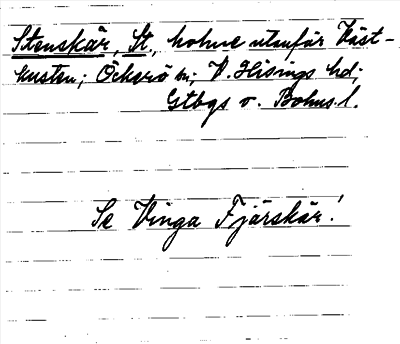 Stenskär, St, holme utanför Väst-
kusten; Öckerö sn; V. Hisings hd;
Gtbgs o. Bohus. l.
Se Vinga Fjärskär!